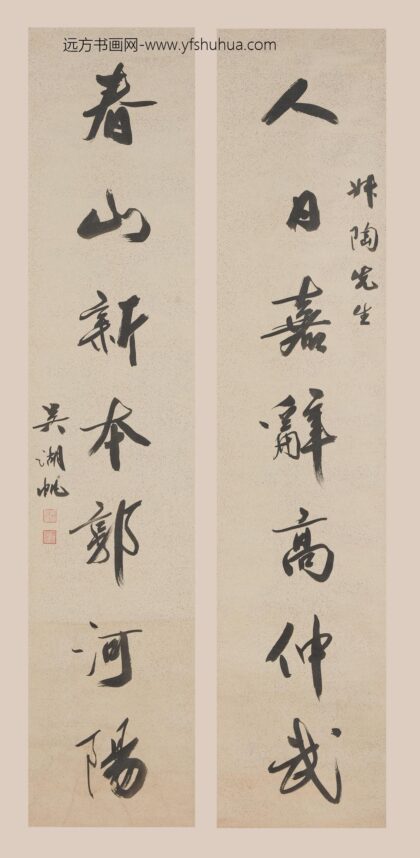 远方书画网-www.yfshuhua.com
陶先生
人日嘉辭高仲武
春山新本郭河陽
吳湖帆